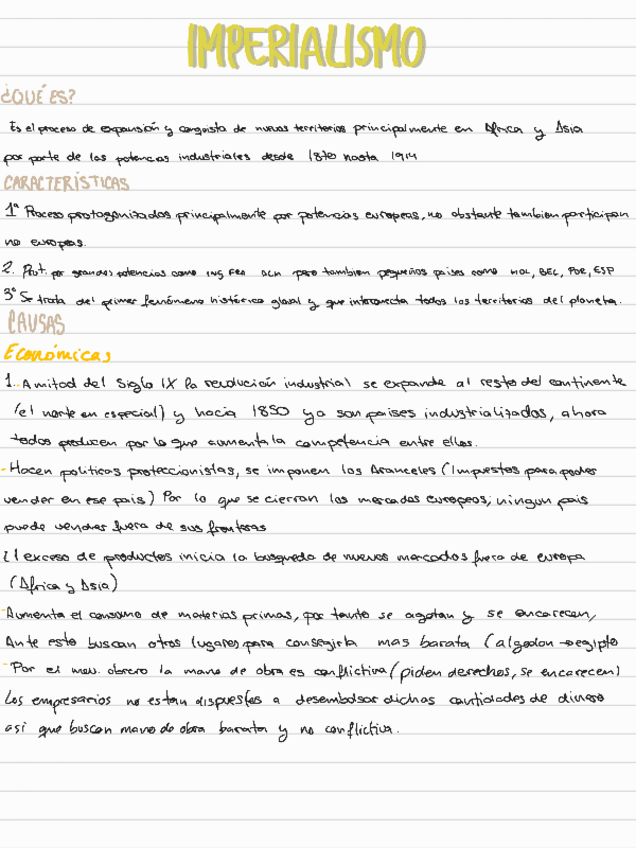 IMPERIALISMO
¿QUÉ ES?
Es el proceso de expansión y conquista de nuevos territorios principalmente en Africa y Asia
por parte de las potencias industriales desde 1870 hasta 1914
CARACTERÍSTICAS
1ª Proceso protagonizados principalmente por potencias europeas, no obstante tambien participan
no europeas.
2. Prot. por grandes potencias como ING FRA ALN pero tambien pequeños paises como HOL, BEL, POR, ESP
3º Se trata del primer fenómeno histórico global y que interconecta todos los territorios del planeta.
CAUSAS
Económicas
1.. A mitad del Siglo IX la revolución industrial se expande al resto del continente
(el norte en especial) y hacia 1850 ya son paises industrializados, ahora
todos producen por lo que aumenta la competencia entre ellos.
-Hacen politicas proteccionistas, se imponen los Aranceles (Impuestos para poder
vender en ese pais) Por lo que se cierran los mercados europeos, ningun pais
puede vender fuera de sus fronteras
El exceso de productos inicia la busqueda de nuevos mercados fuera de europa
(Africa y Asia)
-Aumenta el consumo de materias primas, por tanto se agotan y se encarecen,
Ante esto buscan otros lugares para conseguirla mas barata (algodon →egipto
-Por el mov. obrero la mano de obra es conflictiva (piden derechos, se encarecen)
Los empresarios no estan dispuestos a desembolsar dichas cantidades de dinero
asi que buscan mano de obra barata y no conflictiva.